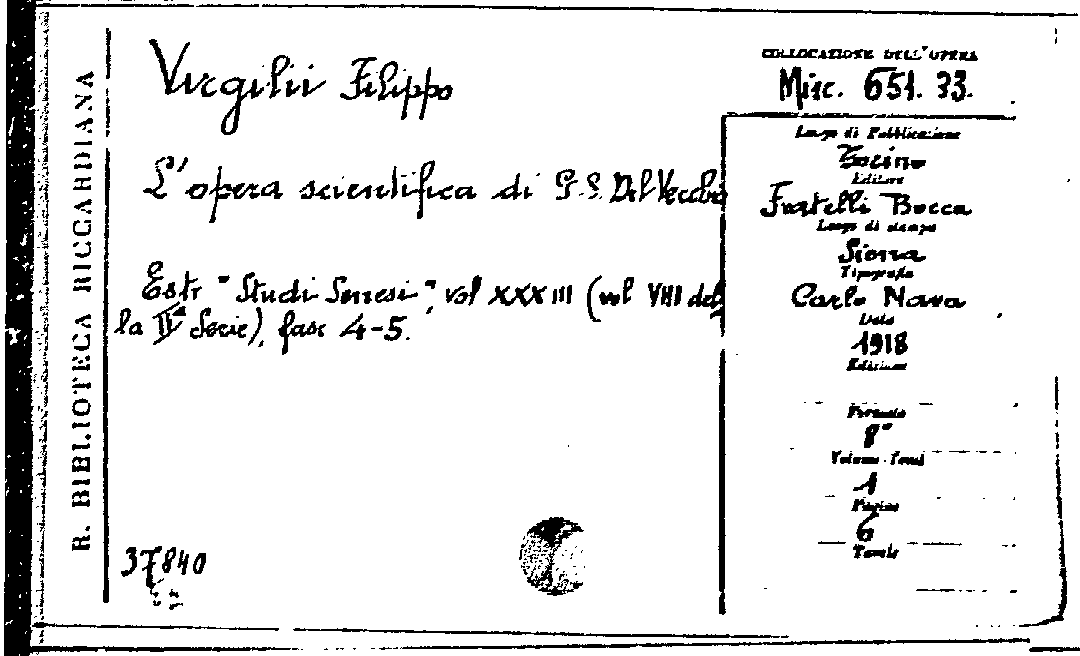 R. BIBLIOTECA RICCARDIANA
Virgilii Filippo
L'opera scientifica di G. S. Del Vecchio
Estr "Studi Senesi", vol XXXIII (vol VIII del
la IIª Serie), fasc 4-5.
37840
COLLOCAZIONE DELL'OPERA
Misc. 651. 33.
Luogo di Pubblicazione
Torino
Editore
Fratelli Bocca
Luogo di stampa
Siena
Tipografia
Carlo Nava
Data
1918
Edizione
Formato
8°
Volume-Tomi
1
Pagine
6
Tavole